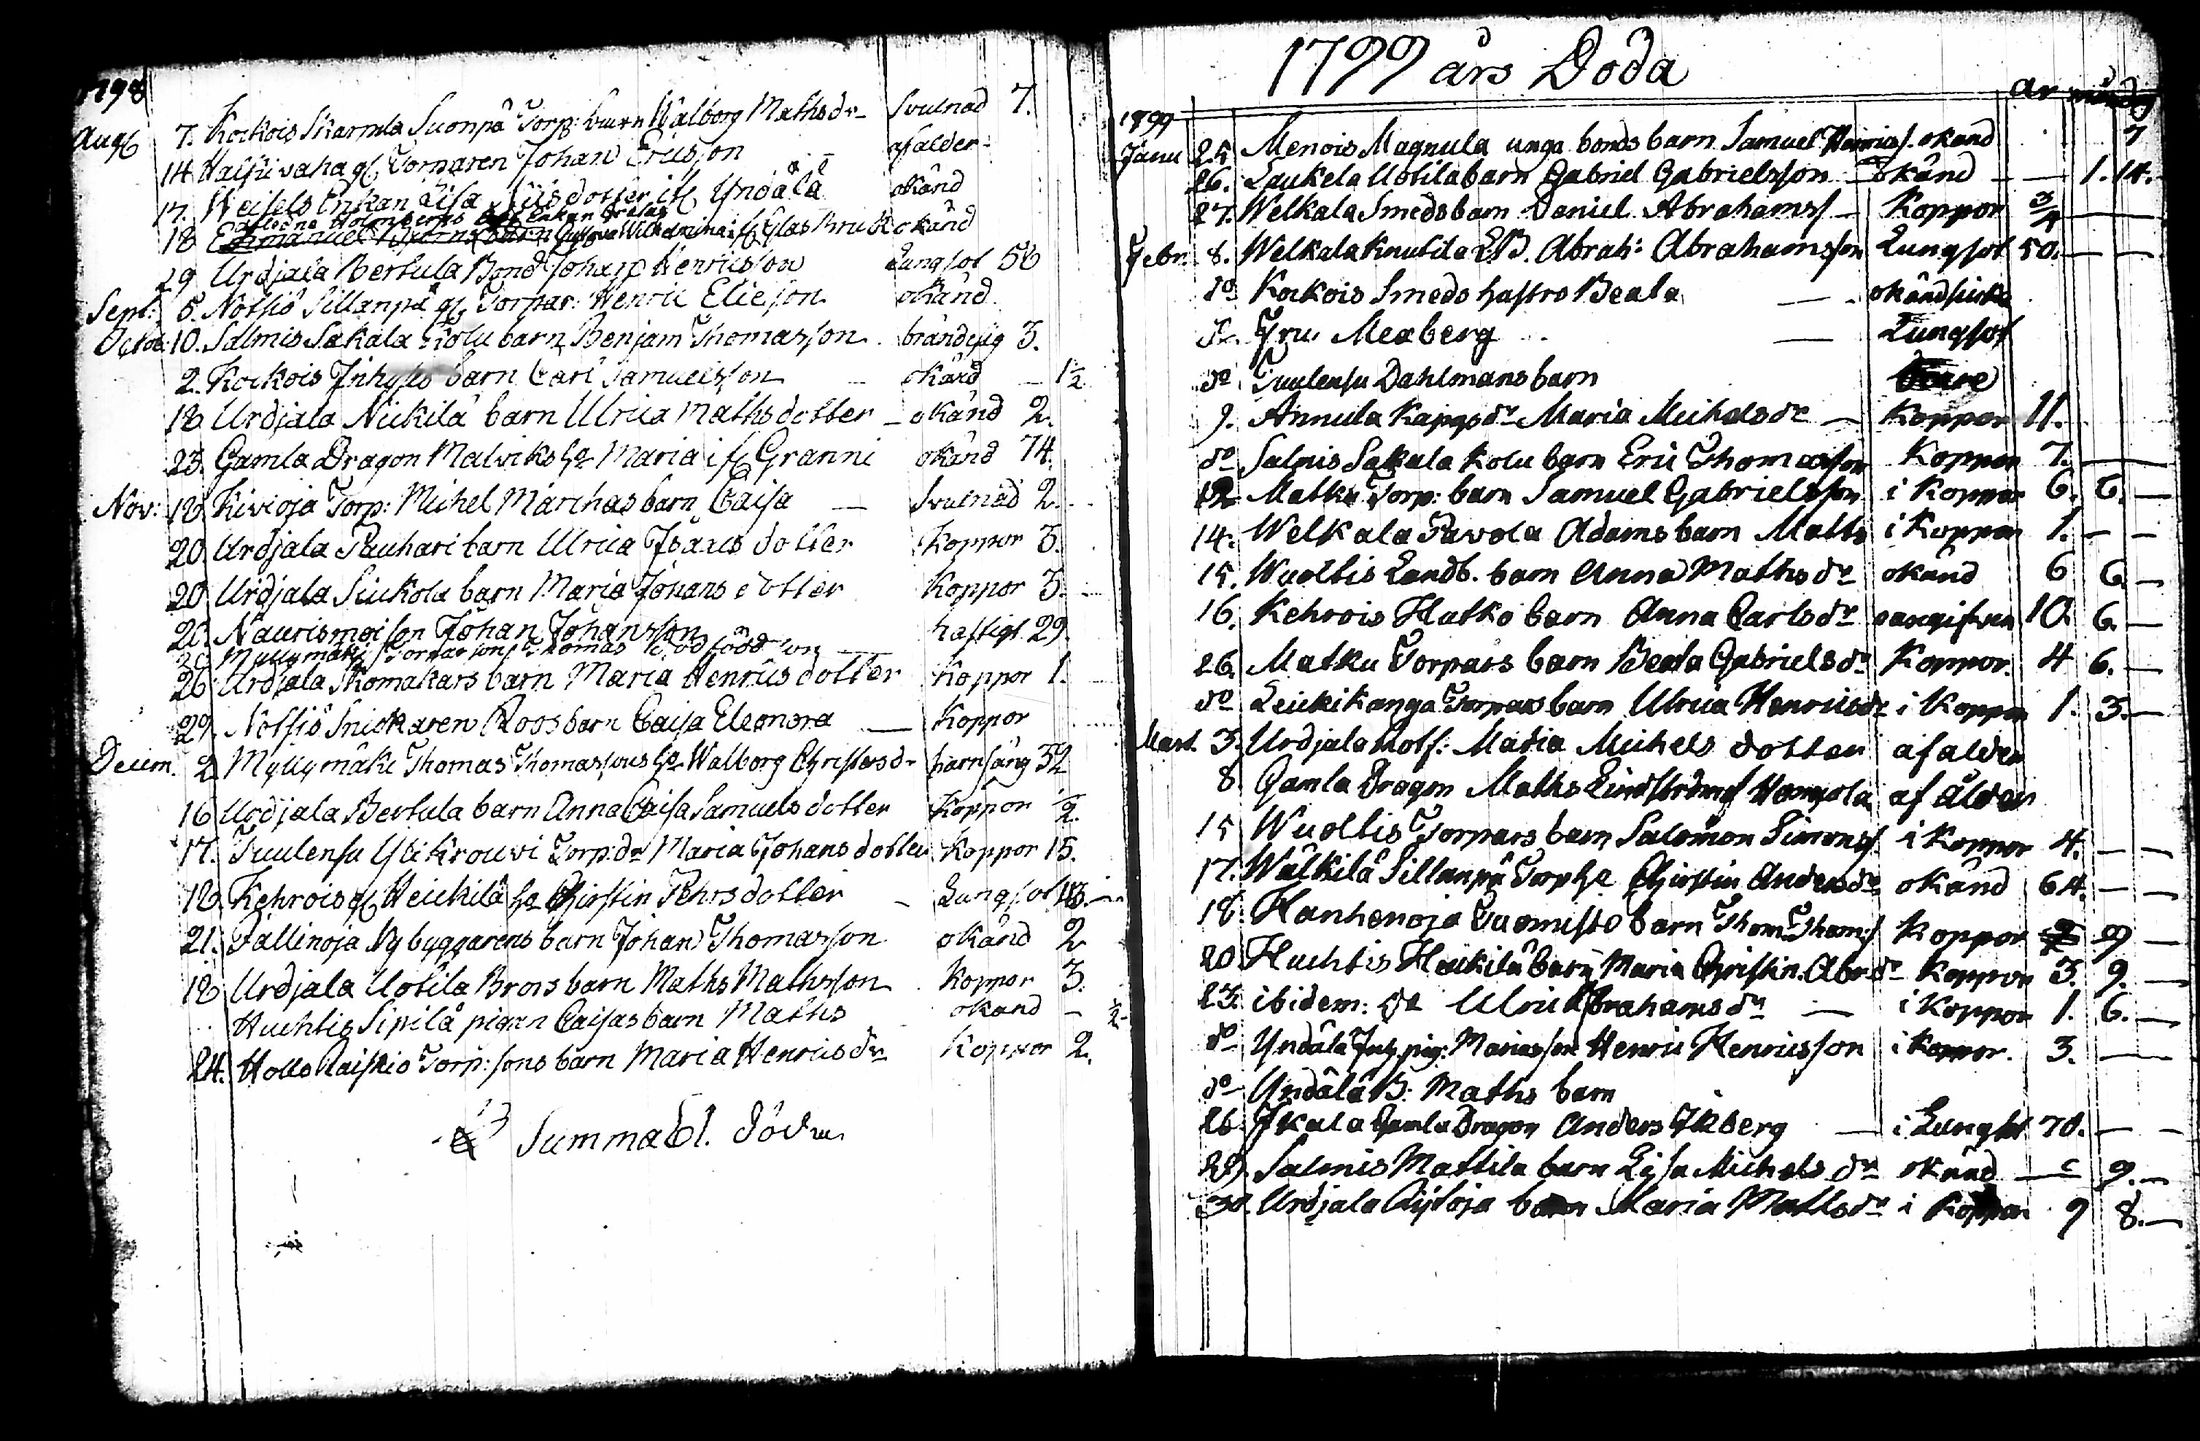 1798
Aug 7. Kockois Skarmla Suonpä Torp: barn Walborg Mathsdr Svulnad 7.
14. gl Torparen Johan Ericsson af ålder
17. Enkan Lisa dotter if Yndälä okänd
Holmbergs Enkan
18. Gustava Wilhelmina if Glas Bruk okänd
29. Urdjala Bertula Bond Johan Henricsson Lungsot 56
Sept: 8. Notsiö Sillanpä gl Torpar: Henric Elieson okänd
Octob. 10. Salmis Sakala Kolu barn Benjam Thomasson 3.
2. Kockois Inhyses barn Carl Samuelsson okänd – 1½
18. Urdjala Nickilä barn Ulrica Mathsdotter – okänd 2.
23. Gamla Dragon Malviks ha Maria if Granni okänd 74.
Nov: 18. Kivioja Torp: Michel Marchas barn Caisa — Svulnad 2.
20. Urdjala Pauhari barn Ulrica Isaacs dotter Koppor 3.
20. Urdjala Siukola barn Maria Johans dotter Koppor 3.
26. Johan Johansson hastigt 29.
30. Myllymäki Torpar son Thomas
26. Urdjala Skomakars barn Maria Henrics dotter Koppor 1.
29. Notsiö Snickaren Roos barn Caisa Eleonora — Koppor
Decem. 2. Myllymäki Thomas Thomassons ha Walborg Christersdr barnsäng 32
16 Urdjala Bertula barn Anna Caisa Samuels dotter Koppor ½.
17. Tuulensu Ylikrouvi Torp: dr Maria Johans dotter Koppor 15.
18. Kehrois gl Heickilä ha Christin Pehrsdotter – Lungsot
21. Fallinoja Nybyggarens barn Johan Thomasson okänd 2
18 Urdjala Uotila Brors barn Maths Mathsson Koppor 3.
Huchtis Sipilä pigan Caisas barn Maths okänd – ½
24. Hollo Raiskio Torp: sons barn Maria Henricsdr Koppor 2.
Summa 61. döde
1799 års Döda
år månad
1799
Janu 25. Menois Magnula unga bonds barn Samuel Henricss. okänd 7
26. Laukela Uotila barn Gabriel Gabrielsson – okänd – 1. 14.
27. Welkala Smeds barn Daniel Abrahamss – Koppor ¾
Febr: 8. Welkala Knutila Abrah: Abrahamsson Lungsot 50.
do Kockois Smeds hustro Beata — okänd
do Fru Mexberg — Lungsot
do Tuulensu Dahlmans barn
9. Annula Kapps dr Maria Michelsdr — Koppor 11.
do Salmis Sakala Kolu barn Eric Thomasson Koppor 7.
12 Matku Torp: barn Samuel Gabrielsson i Koppor 6. 6.
14. Welkala Pavola Adams barn Maths i Koppor 1. – –
15. Wuoltis Landb. barn Anna Mathsdr okänd 6 6. –
16. Kehrois Hatko barn Anna Carlsdr 10. 6. –
26. Matku Torpars barn Beata Gabrielsdr Koppor. 4 6. –
do Leickikanga Torpars barn Ulrica Henricsdr i Koppor 1. 3. –
Mart. 3. Urdjala Maria Michels dotter af ålder
8 Gamla Dragon Maths Lindström af ålder
15 Wuoltis Torpars barn Salomon Simonss i Koppor 4. – –
17. Wälkilä Sillanpä Torp ha Christin Andersdr okänd 64. – –
18. Hanhenoja Tuomisto barn Thom: Thoms Koppor 9 –
20 Huchtis Heickilä barn Maria Christin. Abr dr Koppor 3. 9. –
23. ibidem: do Ulrica Abrahamsdr — i Koppor 1. 6. –
do Yndälä Inh. pig: Marias son Henric Henricsson i Koppor. 3. —
do Yndälä B: Maths barn
26. Gamla Dragon Anders — i Lungsot 70. – –
29. Salmis Mattila barn Lisa Michelsdr okänd — 9. –
30. Urdjala barn Maria Mathsdr i Koppor 9 8. –